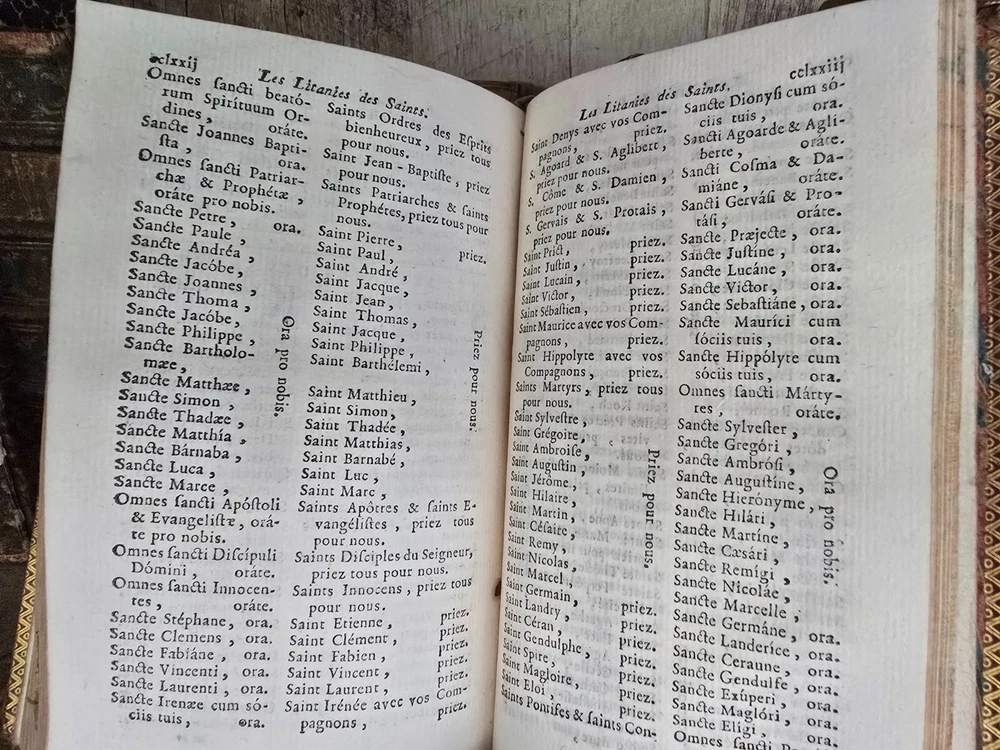 cclxxij
Les Litanies des Saints.
Omnes sancti beató-
rum Spirítuum Or-
dines, oráte.
Sancte Joannes Bapti-
sta, ora.
Omnes sancti Patriar-
chæ & Prophétæ,
oráte pro nobis.
Sancte Petre, ora.
Sancte Paule,
Sancte Andréa,
Sancte Jacóbe,
Sancte Joannes,
Sancte Thoma,
Sancte Jacóbe,
Sancte Philippe,
Sancte Bartholo-
mæe,
Sancte Matthæe,
Sancte Simon,
Sancte Thadæe,
Sancte Matthía,
Sancte Bárnaba,
Sancte Luca,
Sancte Marce,
Ora pro nobis.
Omnes sancti Apóstoli
& Evangelistæ, orá-
te pro nobis.
Omnes sancti Discípuli
Dómini, oráte.
Omnes sancti Innocen-
tes, oráte.
Sancte Stéphane, ora.
Sancte Clemens, ora.
Sancte Fabiáne, ora.
Sancte Vincenti, ora.
Sancte Laurenti, ora.
Sancte Irenæe cum só-
ciis tuis, ora.
Saints Ordres des Esprits
bienheureux, priez tous
pour nous.
Saint Jean-Baptiste, priez
pour nous.
Saints Patriarches & saints
Prophétes, priez tous pour
nous.
Saint Pierre, priez.
Saint Paul,
Saint André,
Saint Jacque,
Saint Jean,
Saint Thomas,
Saint Jacque,
Saint Philippe,
Saint Barthélemi,
Saint Matthieu,
Saint Simon,
Saint Thadée,
Saint Matthias,
Saint Barnabé,
Saint Luc,
Saint Marc,
Priez pour nous.
Saints Apôtres & saints E-
vangélistes, priez tous
pour nous.
Saints Disciples du Seigneur,
priez tous pour nous.
Saints Innocens, priez tous
pour nous.
Saint Etienne, priez.
Saint Clément, priez.
Saint Fabien, priez.
Saint Vincent, priez.
Saint Laurent, priez.
Saint Irénée avec vos Com-
pagnons, priez.
Les Litanies des Saints. cclxxiij
Saint Denys avec vos Com-
pagnons, priez.
S. Agoard & S. Aglibert,
priez pour nous.
S. Côme & S. Damien,
priez pour nous.
S. Gervais & S. Protais,
priez pour nous.
Saint Prict, priez.
Saint Justin, priez.
Saint Lucain, priez.
Saint Victor, priez.
Saint Sébastien, priez.
Saint Maurice avec vos Com-
pagnons, priez.
Saint Hippolyte avec vos
Compagnons, priez.
Saints Martyrs, priez tous
pour nous.
Saint Sylvestre,
Saint Grégoire,
Saint Ambroise,
Saint Augustin,
Saint Jérôme,
Saint Hilaire,
Saint Martin,
Saint Césaire,
Saint Remy,
Saint Nicolas,
Saint Marcel,
Priez pour nous.
Saint Germain, priez.
Saint Landry, priez.
Saint Céran, priez.
Saint Gendulphe, priez.
Saint Spire, priez.
Saint Magloire, priez.
Saint Eloi, priez.
Saints Pontifes & saints Con-
Sancte Dionysi cum só-
ciis tuis, ora.
Sancti Agoarde & Agli-
berte, oráte.
Sancti Cosma & Da-
miáne, oráte.
Sancti Gervási & Pro-
tási, oráte.
Sancte Præjecte, ora.
Sancte Justíne, ora.
Sancte Lucáne, ora.
Sancte Victor, ora.
Sancte Sebastiáne, ora.
Sancte Maurici cum
sóciis tuis, ora.
Sancte Hippólyte cum
sóciis tuis, ora.
Omnes sancti Márty-
res, oráte.
Sancte Sylvester,
Sancte Gregóri,
Sancte Ambrósi,
Sancte Augustíne,
Sancte Hierónyme,
Sancte Hilári,
Sancte Martíne,
Sancte Cæsári,
Sancte Remígi,
Sancte Nicoláe,
Sancte Marcelle,
Ora pro nobis.
Sancte Germáne, ora.
Sancte Landerice, ora.
Sancte Ceraune, ora.
Sancte Gendulfe, ora.
Sancte Exúperi, ora.
Sancte Maglóri, ora.
Sancte Eligi, ora.
Omnes sancti